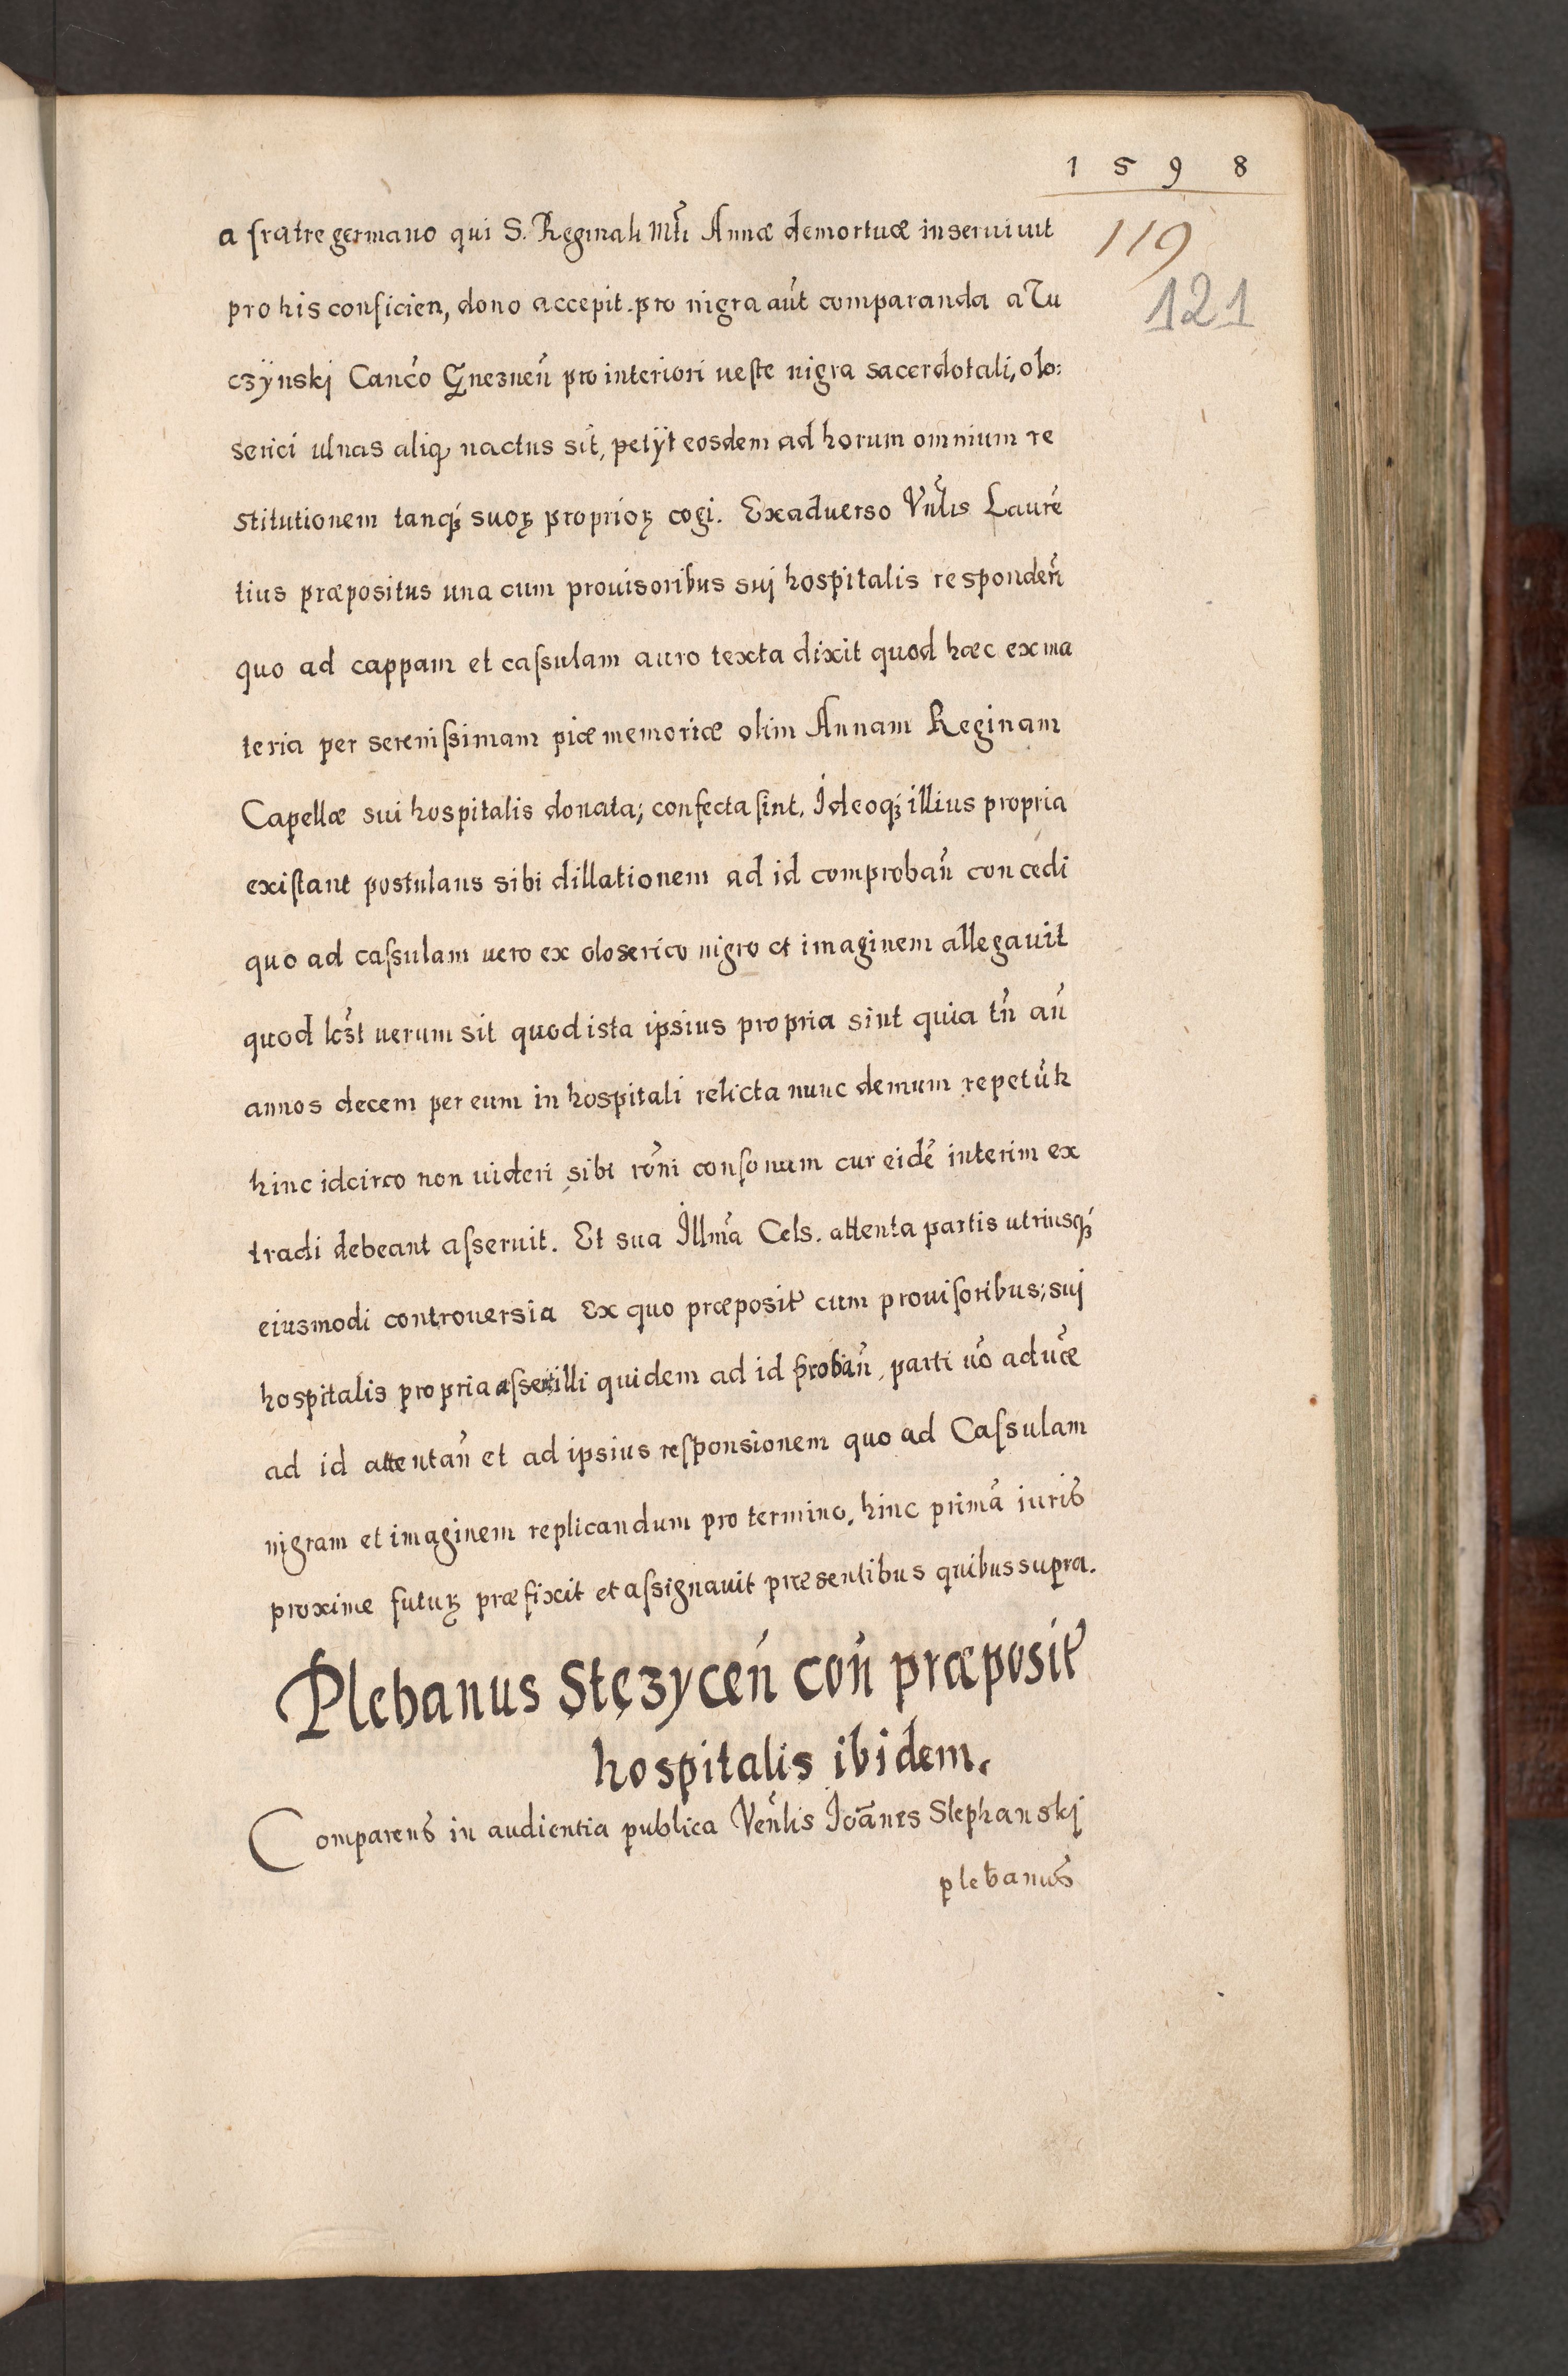 1 5 9 8
119
121
a fratre germano qui S. Reginali Mti Annæ demortuæ inseruiuit
pro his conficien, dono accepit. pro nigra aūt comparanda a Tu
czÿnskj Canco Gneznen̄ pro interiori ueste nigra sacerdotali, olo:
serici ulnas aliq, nactus sit, petÿt eosdem ad horum omnium re
stitutionem tanq suoꝝ proprioꝝ cogi. Exaduerso Vnlis Laurē
tius præpositus una cum prouisoribus suj hospitalis responden̄
quo ad cappam et cassulam auro texta dixit quod hæc ex ma
teria per serenissimam piæ memoriæ olim Annam Reginam
Capellæ sui hospitalis donata; confecta sint. Ideoqꝫ illius propria
existant postulans sibi dillationem ad id comproban̄ concedi
quo ad cassulam uero ex oloserico nigro et imaginem allegauit
quod lcst uerum sit quod ista ipsius propria sint quia tn̄ an̄
annos decem per eum in hospitali relicta nunc demum repetūt
hinc idcirco non uideri sibi rōni consonum cur eidē interim ex
tradi debeant asseruit. Et sua Illmā Cels. attenta partis utriusqꝫ
eiusmodi controuersia Ex quo præposit9 cum prouisoribus; suj
hospitalis propria asserit illi quidem ad id proban̄, parti uō aduc̄æ
ad id attentan̄ et ad ipsius responsionem quo ad Cassulam
nigram et imaginem replicandum pro termino, hinc primā iuris
proxime futuꝝ præfixit et assignauit præsentibus quibus supra.
Plebanus Stęzycen̄ con̄ præposit9
hospitalis ibidem.
Comparens in audientia publica Ven̄lis Ioān̄es Stephanskj
plebanus